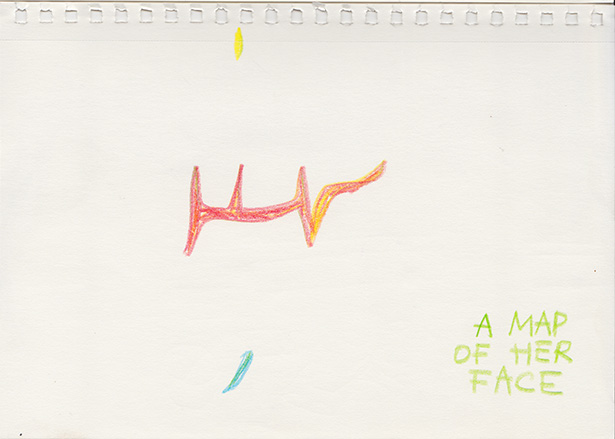 A MAP
OF HER
FACE